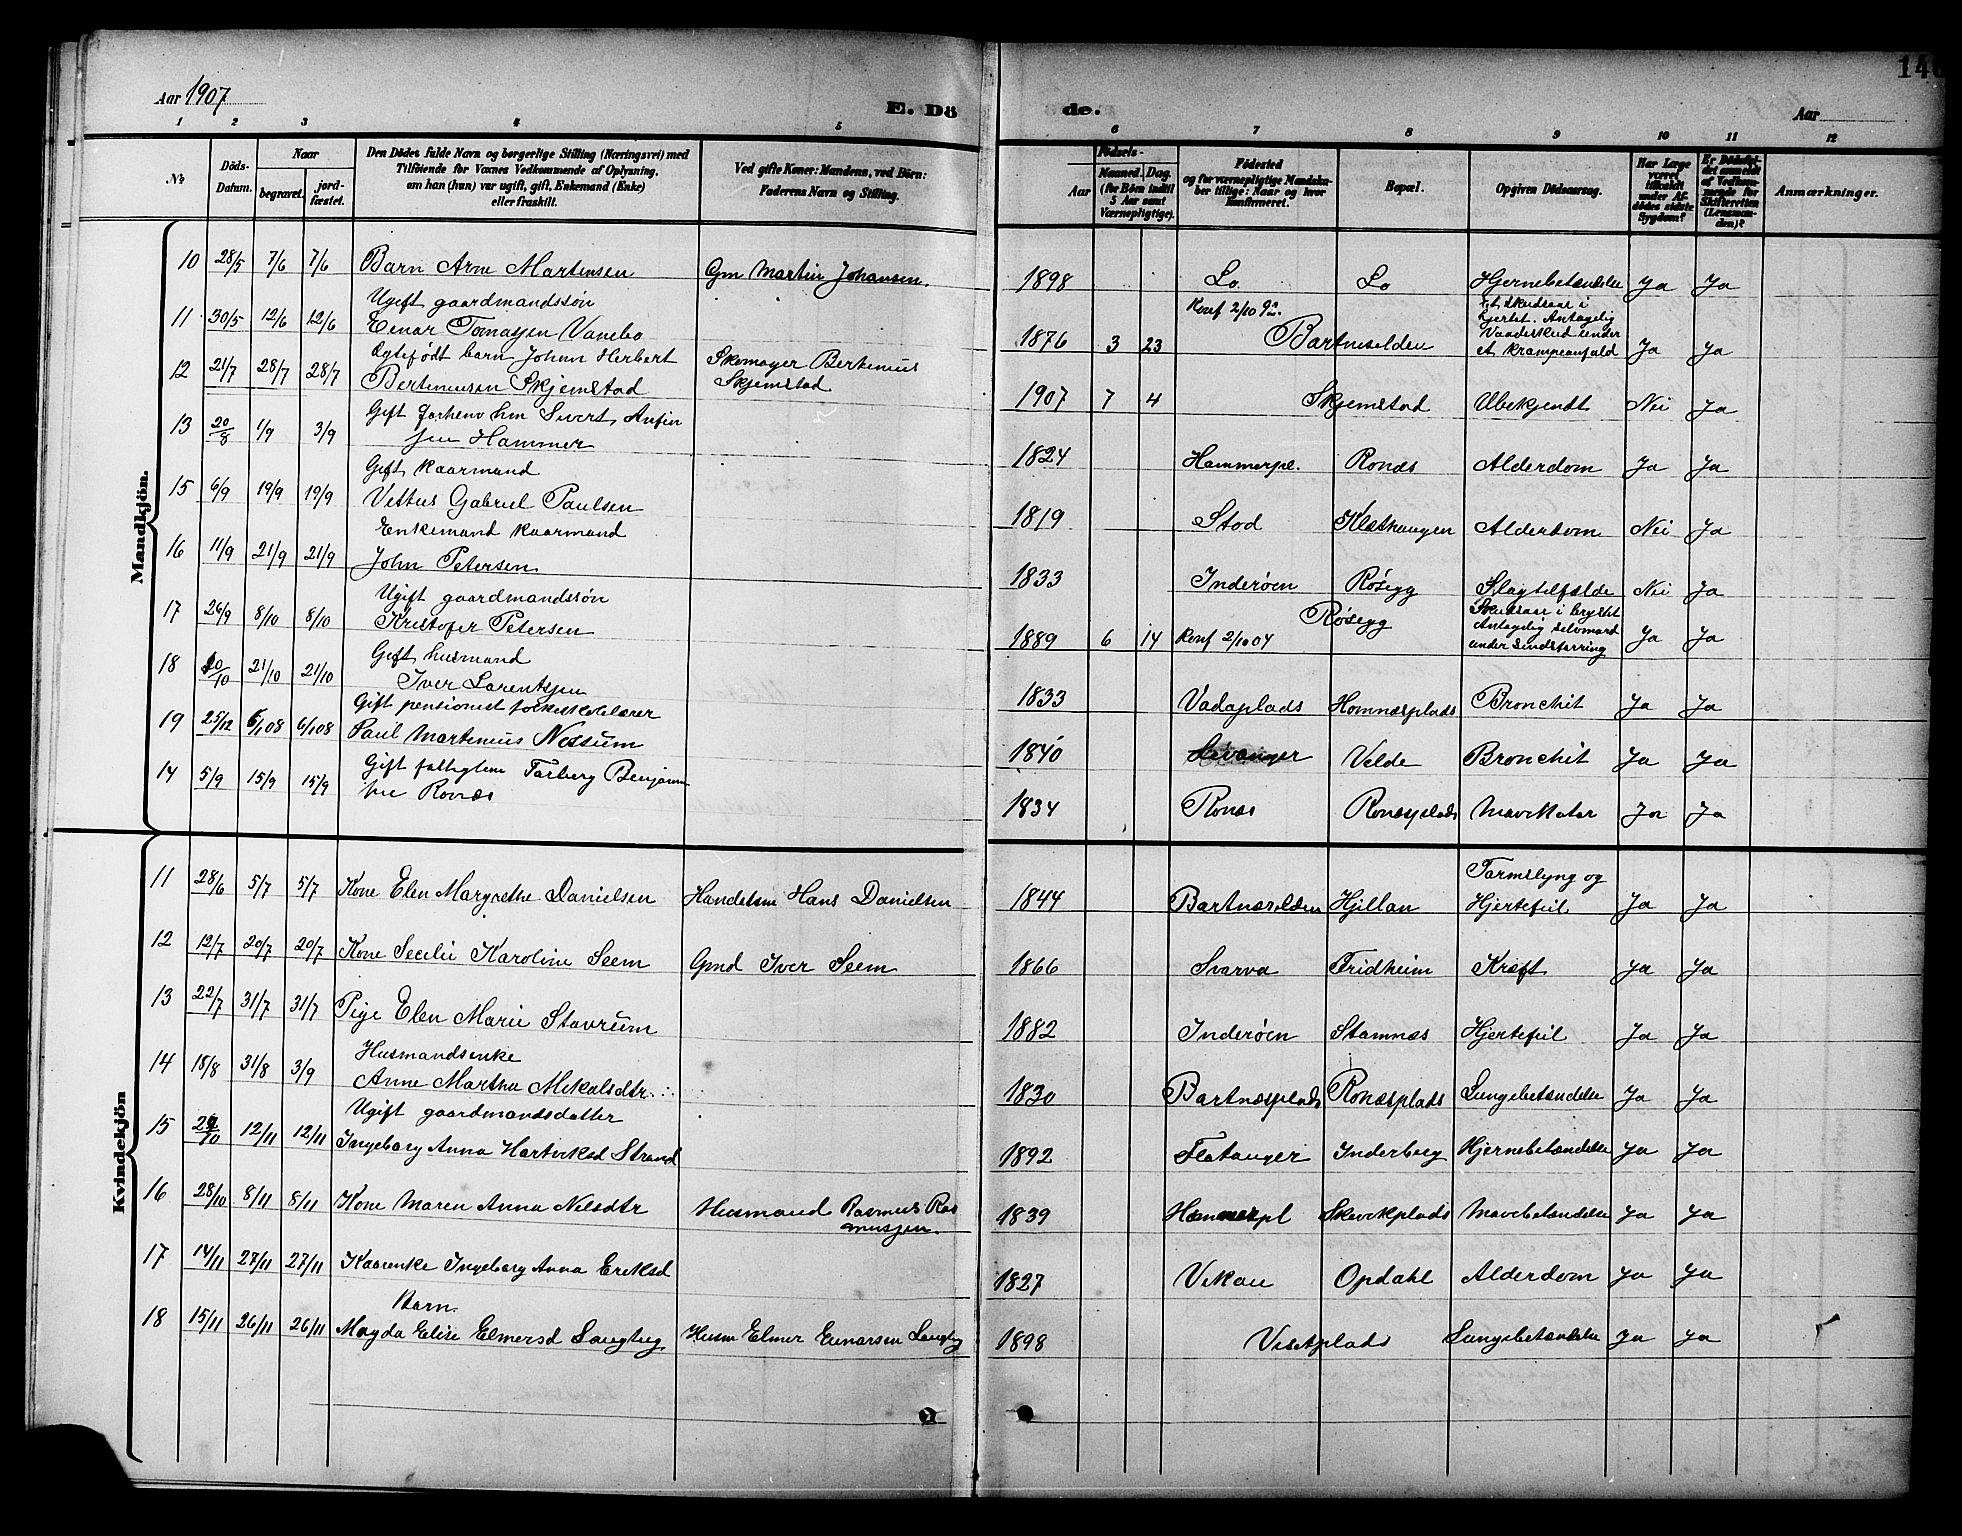 140
Aar 1907
E. Döde.
Aar
1 2 3 4 5 6 7 8 9 10 11 12
No.
Döds-Datum.
Naar
begravet.
jord-fæstet.
Den Dödes fulde Navn og borgerlige Stilling (Næringsvei) med
Tilföiende for Voxnes Vedkommende af Oplysning,
om han (hun) var ugift, gift, Enkemand (Enke)
eller fraskilt.
Ved gifte Koner: Mandens, ved Börn:
Faderens Navn og Stilling.
Födsels-
Aar
Maaned. Dag.
(for Börn indtil
5 Aar samt
Værnepligtige).
Födested
og for værnepligtige Mandskaber tillige: Naar og hvor
konfirmeret.
Bopæl.
Opgiven Dödsaarsag.
Har Læge
været
tilkaldt
under Afdödes sidste
Sygdom?
Er Dödsfaldet anmeldt
af Vedkommende for
Skifteretten
(Lensmanden)?
Anmærkninger.
Mandkjön.
10 28/5 7/6 7/6 Barn Arne Martensen Gm Martin Johansen. 1898 Lo Lo Hjernebetændelse Ja Ja
11 30/5 12/6 12/6 Ugift gaardmandssön
Einar Tomassen Vanebo 1876 3 23 Konf 2/10 92. Bartneselden Et skudsaar i
hjertet. Antagelig
Vaadeskud under
et krampeanfald Ja Ja
12 21/7 28/7 28/7 Egtefödt barn Johan Herbert
Bertinussen Skjemstad Skomager Bertinius
Skjemstad 1907 7 4 Skjemstad Ubekjendt Nei Ja
13 20/8 1/9 3/9 Gift forhenv hm Sivert Anfin
sen Hammer 1824 Hammerpl. Ronæs Alderdom Ja Ja
15 6/9 19/9 19/9 Gift Kaarmand
Vettus Gabriel Paulsen 1819 Stod Klæthaugen Alderdom Nei Ja
16 11/9 21/9 21/9 Enkemand Kaarmand
John Petersen 1833 Inderöen Rösegg Slagtilfælde Nei Ja
17 26/9 8/10 8/10 Ugift gaardmandssön
Kristofer Petersen 1889 6 14 Konf 2/10 04 Rösegg Skudsaar i brystet
Antagelig selvmord
under sindsforring Ja Ja
18 10/10 21/10 21/10 Gift husmand
Iver Larentsen 1833 Vadaplads Homnæsplads Bronchit Ja Ja
19 25/12 6/1 08 6/1 08 Gift pensionist folkeskolelærer
Paul Martinius Nessum 1840 Levanger Velde Bronchit Ja Ja
14 5/9 15/9 15/9 Gift fattiglem Torberg Benjamin
sen Ronæs 1834 Ronæs Ronæsplads Mavekatar Ja Ja
Kvindekjön
11 28/6 5/7 5/7 Kone Elen Margrethe Danielsen Handelsm Hans Danielsen 1844 Bartnæselden Hjellan Tarmslyng og
Hjertefeil Ja Ja
12 12/7 20/7 20/7 Kone Secilie Karoline Seem Gmd Iver Seem 1866 Svarva Fridheim Kræft Ja Ja
13 22/7 31/7 31/7 Pige Elen Marie Stavrum 1882 Inderöen Stamnæs Hjertefeil Ja Ja
14 18/8 31/8 3/9 Husmandsenke
Anne Martha Mikalsdtr. 1830 Bartnæsplads Ronæsplads Lungebetændelse Ja Ja
15 29/10 12/11 12/11 Ugift gaardmandsdatter
Ingeborg Anna Hartviksd Strand 1892 Flatanger Inderberg Hjernebetændelse Ja Ja
16 28/10 8/11 8/11 Kone Maren Anna Nilsdtr Husmand Rasmus Ras
mussen. 1839 Hammerpl Skevikplads Mavebetændelse Ja Ja
17 14/11 27/11 27/11 Kaarenke Ingeborg Anna Eriksd 1827 Vikau Opdahl Alderdom Ja Ja
18 15/11 26/11 26/11 Barn
Magda Elise Elmersd Langlug Husm Elmer Einarsen 1898 Visetplads Lungebetændelse Ja Ja